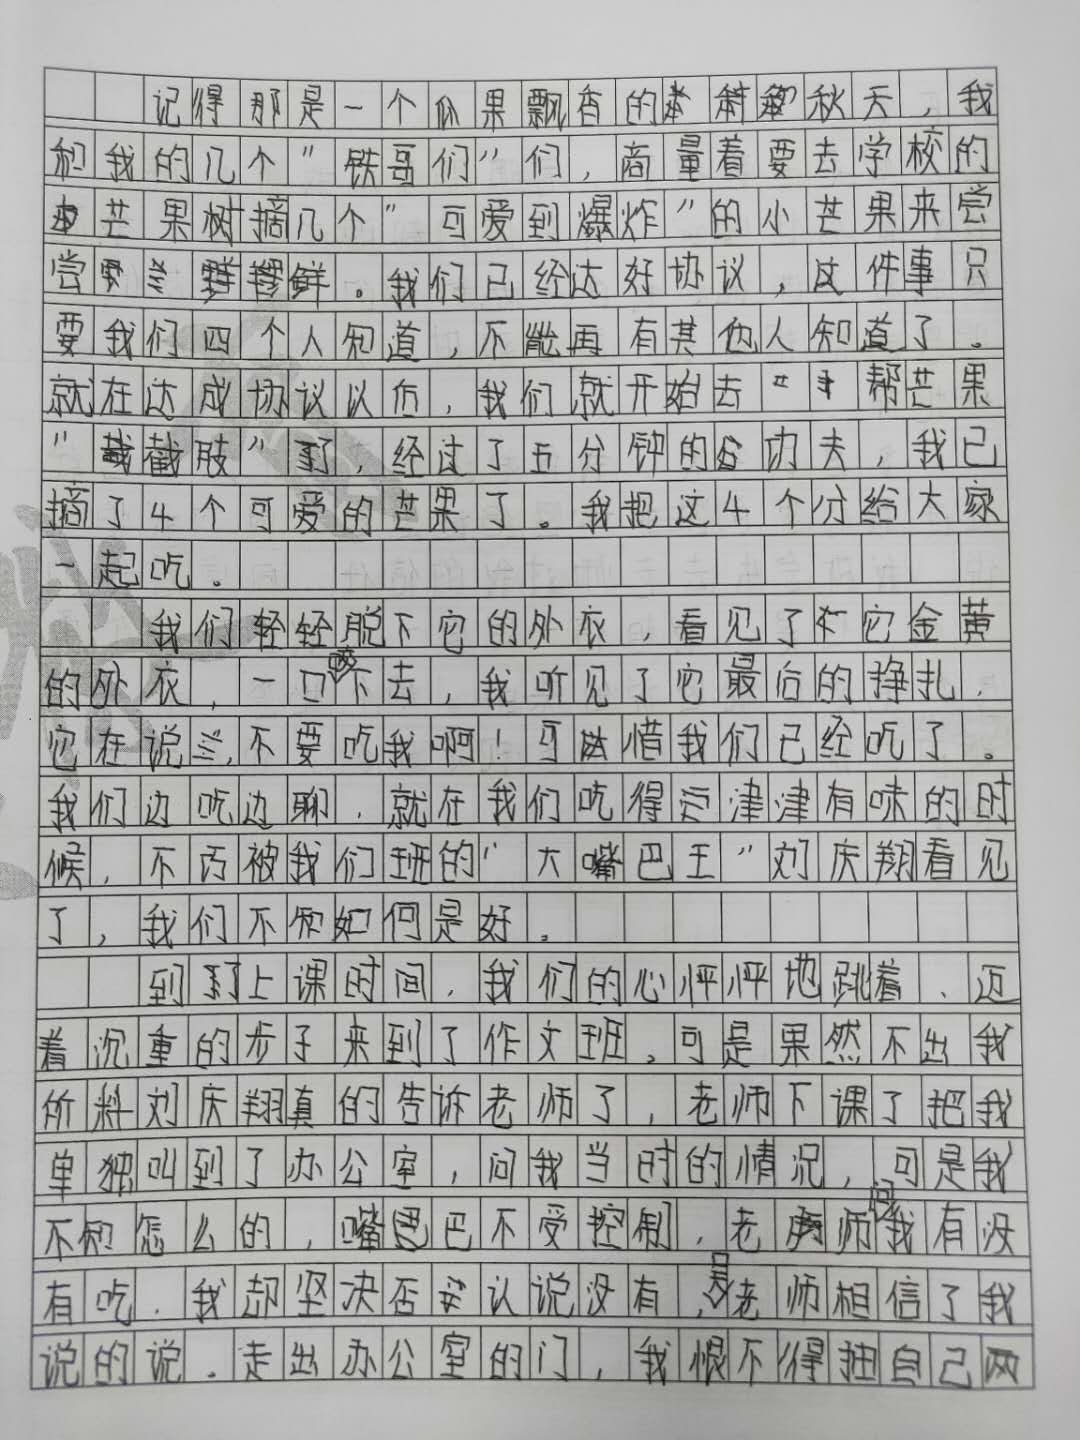 记得那是一个瓜果飘香的秋天，我
和我的几个"铁哥们"们，商量着要去学校的
芒果树摘几个"可爱到爆炸"的小芒果来尝
尝鲜。我们已经达好协议，这件事只
要我们四个人知道，不能再有其他人知道了。
就在达成协议以后，我们就开始去帮芒果
"截肢"了，经过了五分钟的功夫，我已
摘了4个可爱的芒果了。我把这4个分给大家
一起吃。
我们轻轻脱下它的外衣，看见了它金黄
的外衣，一口咬下去，我听见了它最后的挣扎，
它在说，不要吃我啊！可惜我们已经吃了。
我们边吃边聊，就在我们吃得津津有味的时
候，不巧被我们班的"大嘴巴王"刘庆翔看见
了，我们不知如何是好。
到了上课时间，我们的心怦怦地跳着、迈
着沉重的步子来到了作文班，可是果然不出我
所料刘庆翔真的告诉老师了，老师下课了把我
单独叫到了办公室，问我当时的情况，可是我
不知怎么的，嘴巴不受控制，老师问我有没
有吃，我却坚决否认说没有，老师相信了我
说的说。走出办公室的门，我恨不得扭自己两